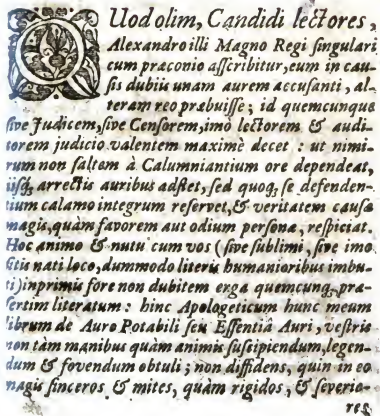 QUod olim, Candidi lectores,
Alexandro illi Magno Regi singulari
cum præconio ascribitur, eum in cau-
sis dubiis unam aurem accusanti, al-
teram reo præbuisse; id quemcunque
sive Judicem, sive Censorem, imò lectorem & audi-
torem judicio valentem maximè decet: ut nimi-
rum non saltem à Calumniantium ore dependeat,
iisq; arrectis auribus adstet, sed quoq; se defenden-
tium calamo integrum reservet, & veritatem causæ
magis, quàm favorem aut odium personæ, respiciat.
Hoc animo & nutu cum vos (sive sublimi, sive imo
sitis nati loco, dummodo literis humanioribus imbu-
ti) inprimis fore non dubitem erga quemcunq; præ-
sertim literatum: hinc Apologeticum hunc meum
librum de Auro Potabili seu Essentiâ Auri, vestris
non tàm manibus quàm animis suscipiendum, legen-
dum & fovendum obtuli; non diffidens, quin in eo
magis sinceros & mites, quàm rigidos, & severio-
res